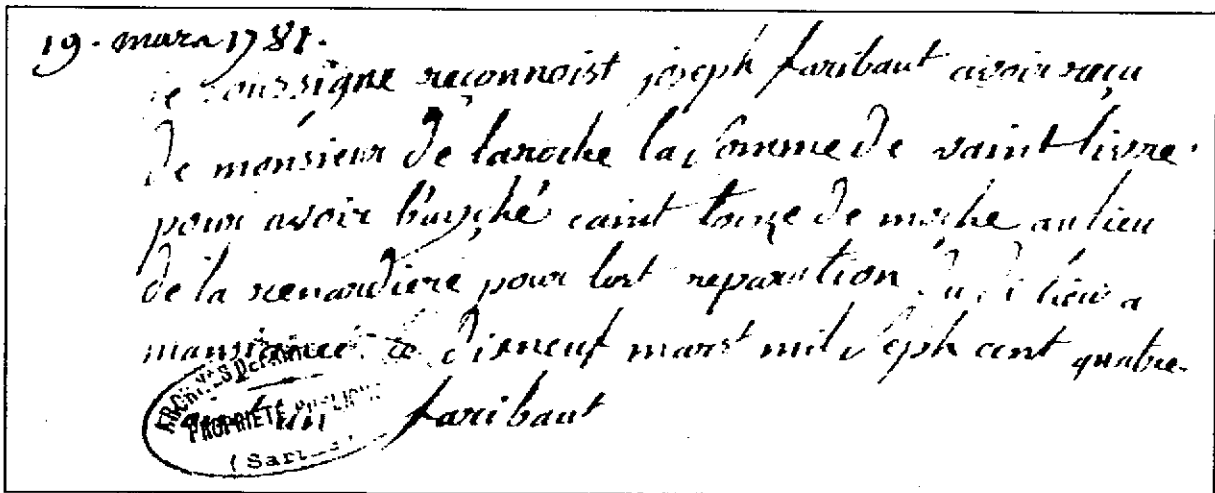 19. mars 1781.
je soussigne reconnoist joseph faribaut avoir reçu
de monsieur de laroche la somme de vaint livre
pour avoir caint de au lieu
de la renardiere pour reparation du di lieu a
ce disneuf mars mil seph cent quatre
faribaut
ARCHIVES
PROPRIÉTÉ PUBLIQUE
(Sarthe)